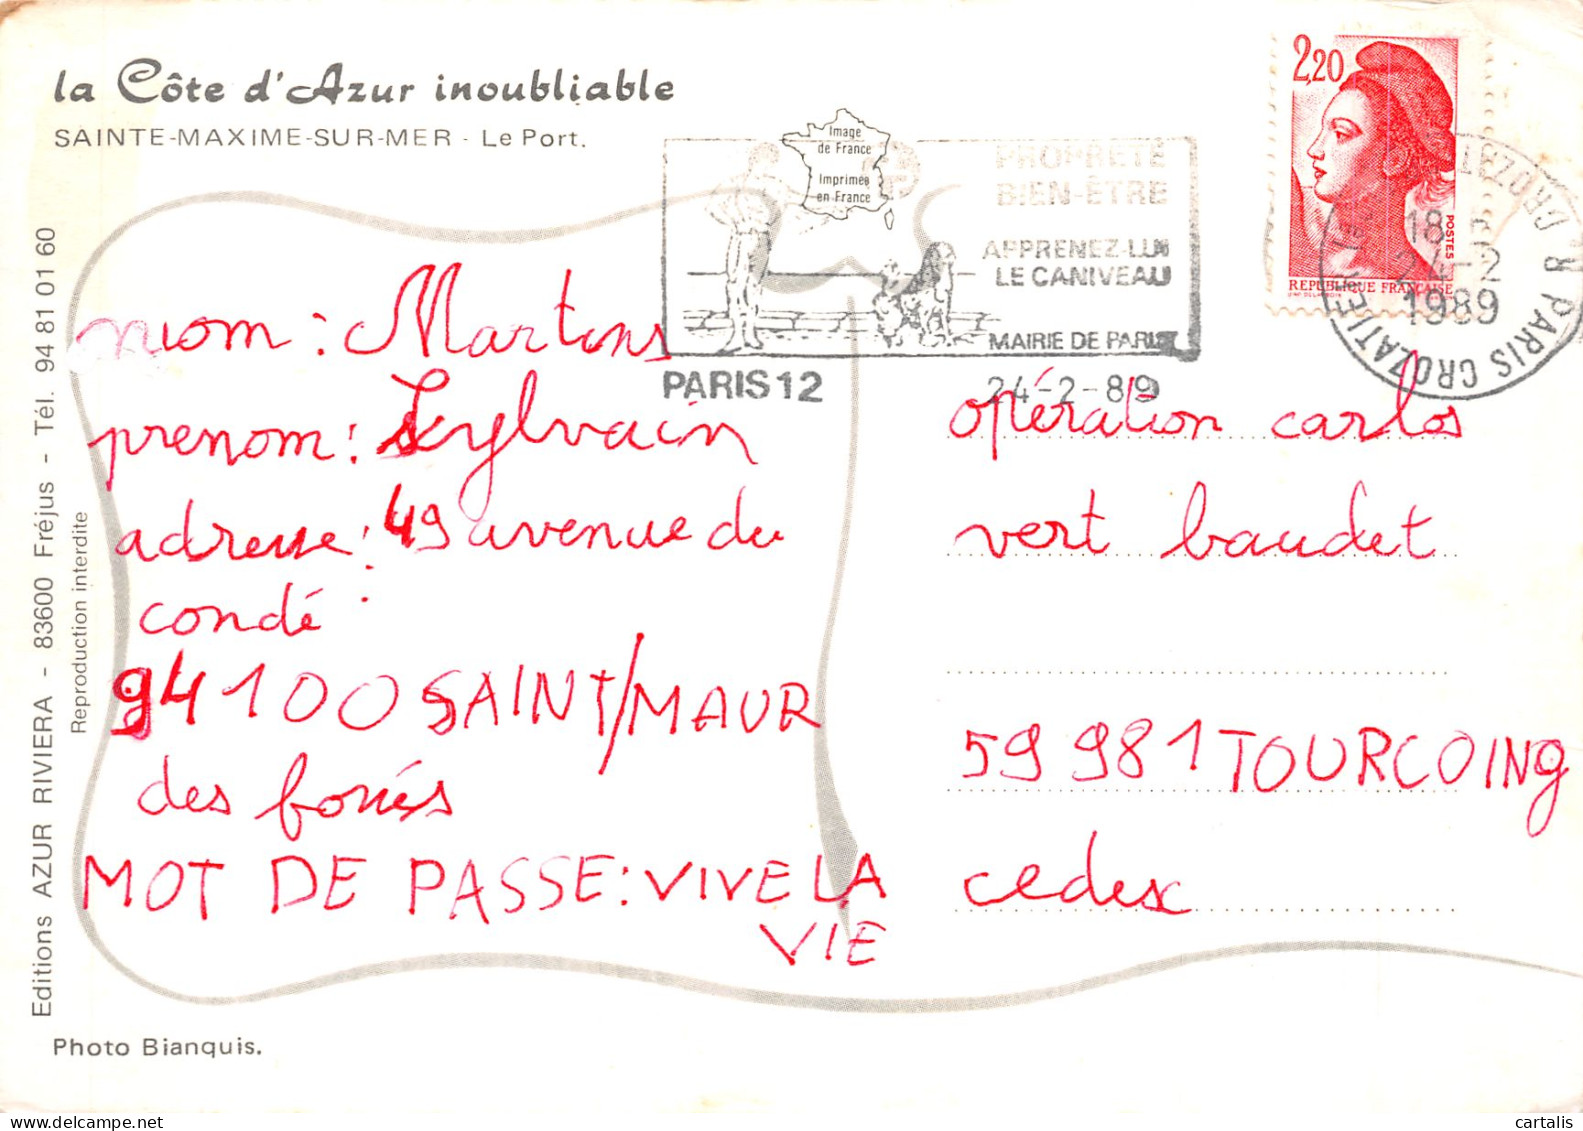 la Côte d'Azur inoubliable
SAINTE-MAXIME-SUR-MER - Le Port.
Image
de France
Imprimée
en France
PROPRETÉ
BIEN-ÊTRE
APPRENEZ-LUI
LE CANIVEAU
MAIRIE DE PARIS
PARIS 12
24-2-89
2,20
POSTES
REPUBLIQUE FRANÇAISE
18
24-2
1989
PARIS CROZATIER
nom : Martins
prenom : Sylvain
adresse : 49 avenue du
condé
94100 SAINT/MAUR
des fossés
MOT DE PASSE : VIVE LA
VIE
opération carlos
vert baudet
59 981 TOURCOING
cedex
Editions AZUR RIVIERA - 83600 Fréjus - Tél. 94 81 01 60
Reproduction interdite
Photo Bianquis.
cartalis